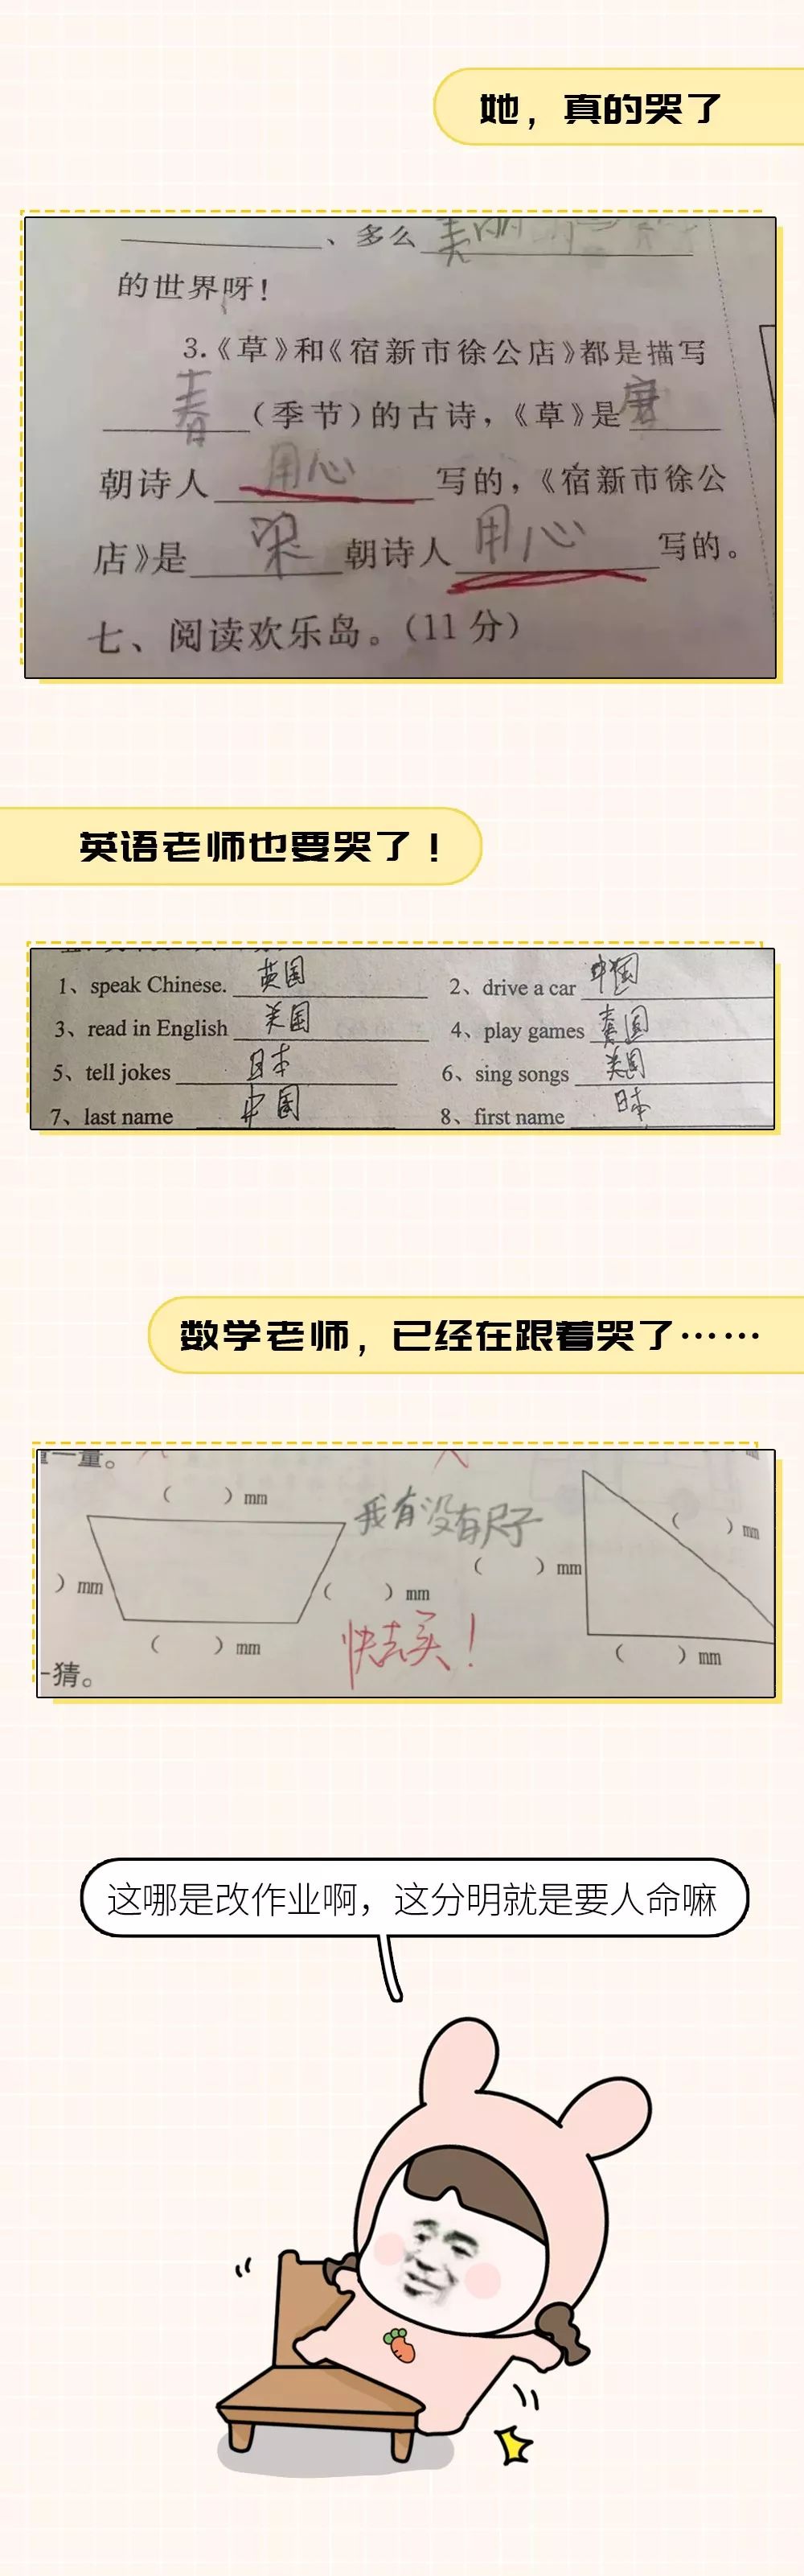 她，真的哭了
、多么 美丽
的世界呀！
3.《草》和《宿新市徐公店》都是描写
春（季节）的古诗，《草》是唐
朝诗人 用心 写的，《宿新市徐公
店》是 宋 朝诗人 用心 写的。
七、阅读欢乐岛。（11 分）
英语老师也要哭了！
1、speak Chinese. 英国 2、drive a car 中国
3、read in English 美国 4、play games 泰国
5、tell jokes 日本 6、sing songs 美国
7、last name 中国 8、first name 日本
数学老师，已经在跟着哭了……
量一量。
（ ）mm 我有没有尺子 （ ）mm
）mm （ ）mm （ ）mm
（ ）mm 快去买！ （ ）mm
一猜。
这哪是改作业啊，这分明就是要人命嘛